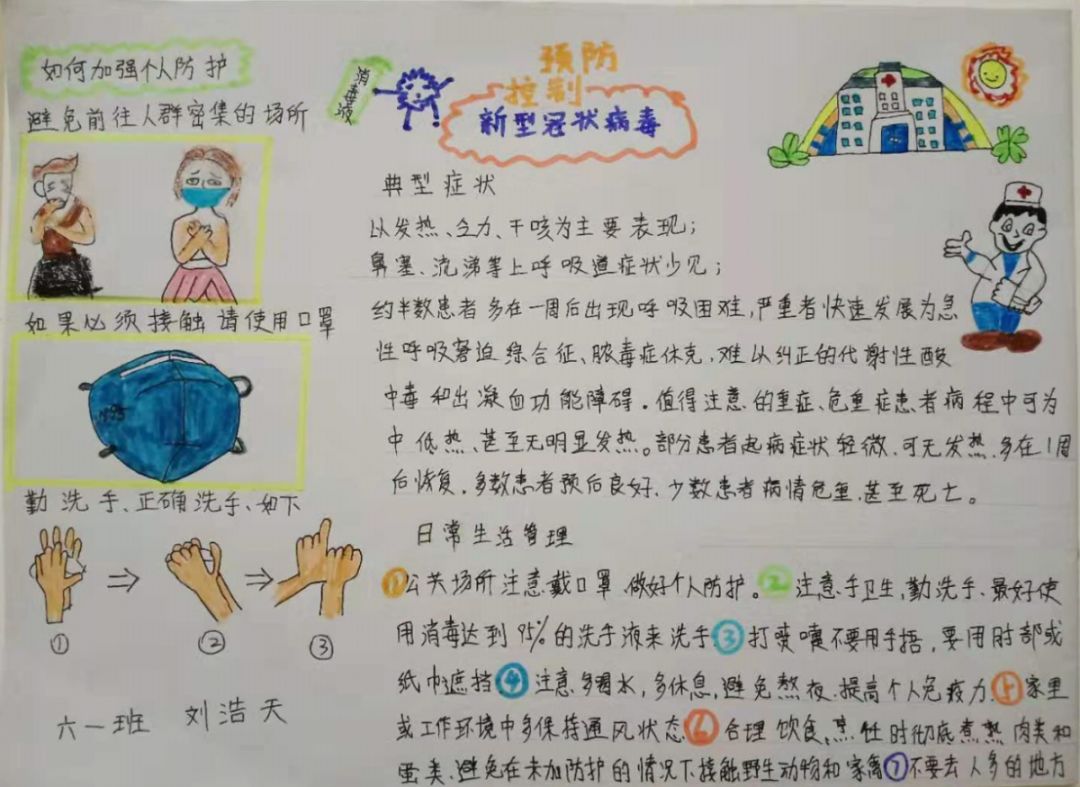 如何加强个人防护
避免前往人群密集的场所
如果必须接触请使用口罩
N95
勤洗手、正确洗手、如下
① ② ③
六一班 刘浩天
消毒液
预防
控制
新型冠状病毒
典型症状
以发热、乏力、干咳为主要表现；
鼻塞、流涕等上呼吸道症状少见；
约半数患者多在一周后出现呼吸困难，严重者快速发展为急
性呼吸窘迫综合征、脓毒症休克，难以纠正的代谢性酸
中毒和出凝血功能障碍。值得注意的重症、危重症患者病程中可为
中低热、甚至无明显发热。部分患者起病症状轻微，可无发热，多在1周
后恢复。多数患者预后良好，少数患者病情危重，甚至死亡。
日常生活管理
①公共场所注意戴口罩，做好个人防护。②注意手卫生，勤洗手、最好使
用消毒达到95%的洗手液来洗手③打喷嚏不要用手捂，要用肘部或
纸巾遮挡④注意多喝水，多休息，避免熬夜，提高个人免疫力⑤家里
或工作环境中多保持通风状态⑥合理饮食，烹饪时彻底煮熟肉类和
蛋类、避免在未加防护的情况下接触野生动物和家禽⑦不要去人多的地方